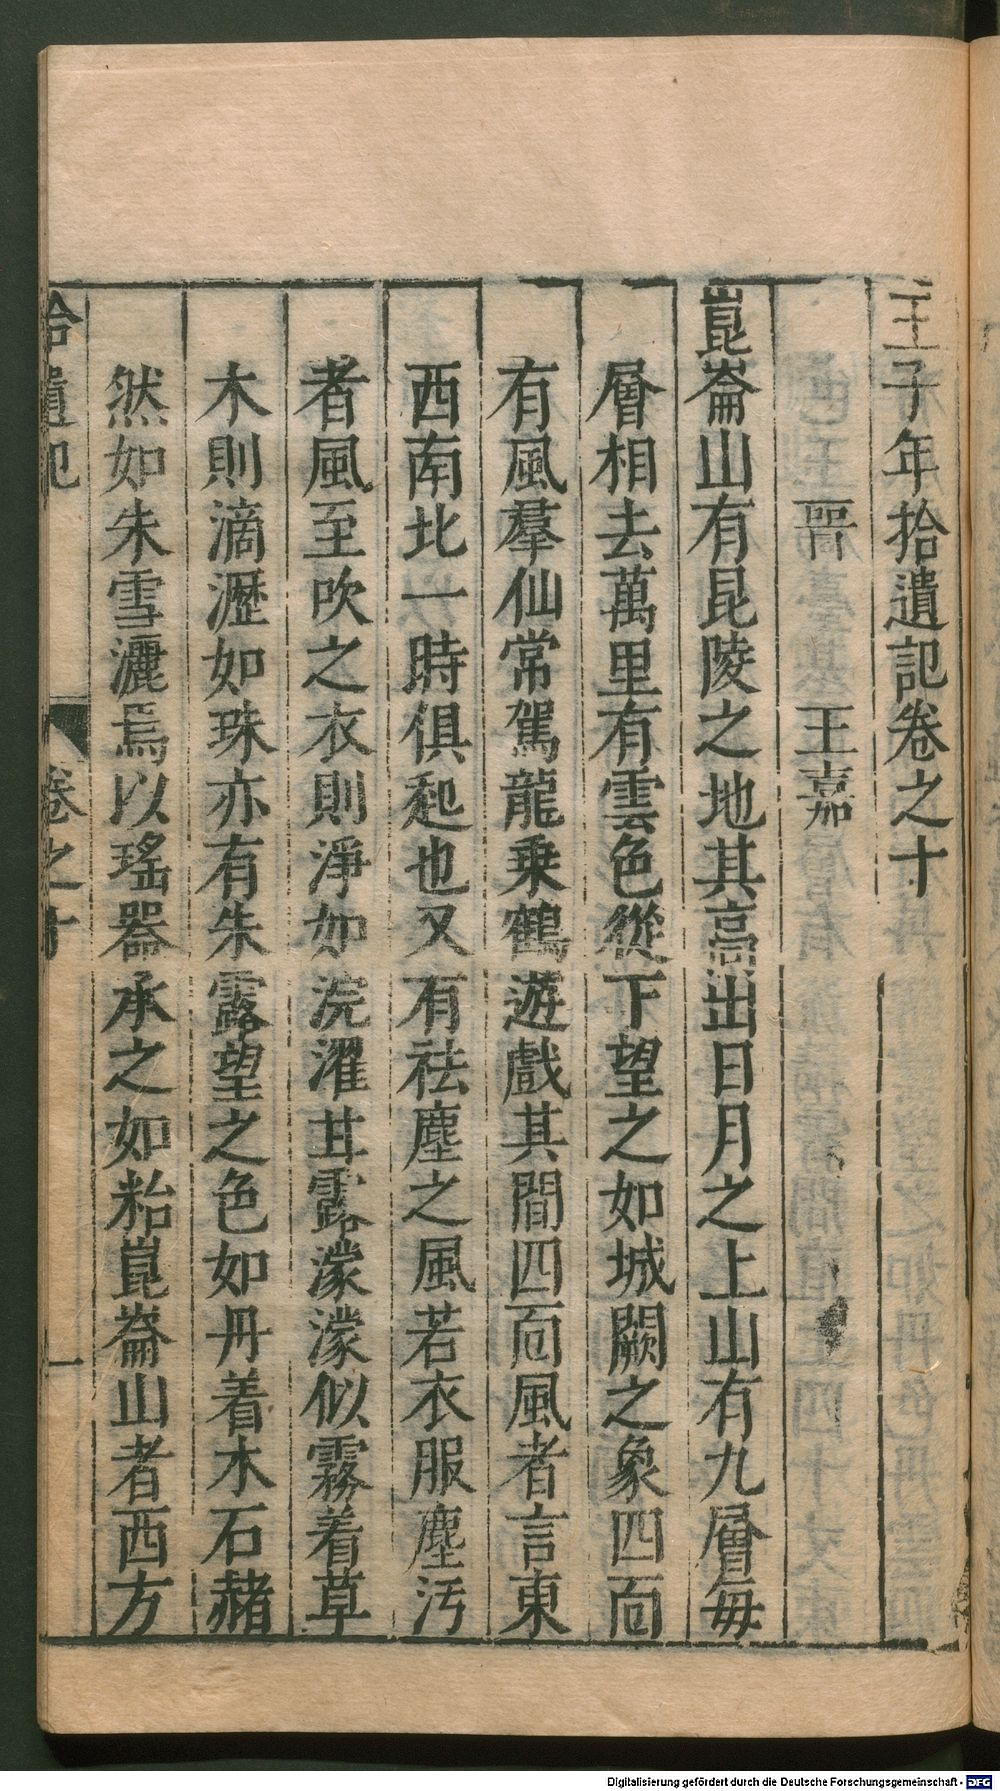 王子年拾遺記卷之十
晉 王嘉
崑崙山有昆陵之地其高出日月之上山有九層每
層相去萬里有雲色從下望之如城闕之象四面
有風羣仙常駕龍乗鶴遊戲其間四面風者言東
西南北一時俱起也又有袪塵之風若衣服塵汚
者風至吹之衣則淨如浣濯甘露濛濛似霧着草
木則滴瀝如珠亦有朱露望之色如丹着木石赭
然如朱雪灑焉以瑤器承之如粭崑崙山者西方
拾遺記 卷之十 一
Digitalisierung gefördert durch die Deutsche Forschungsgemeinschaft - DFG